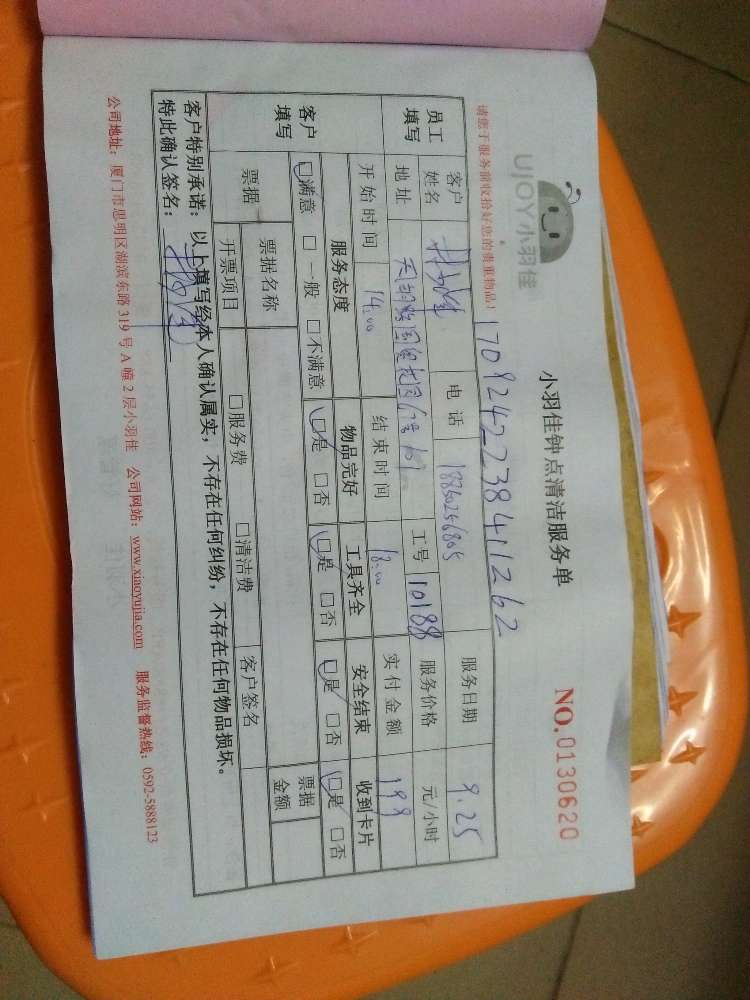 UJOY小羽佳
小羽佳钟点清洁服务单
NO.0130620
请您于服务前收拾好您的贵重物品！
1709242238411262
员工填写
客户姓名
电话 18850256805
服务日期 9.25
地址
工号 10188
服务价格 元/小时
开始时间 14:00
结束时间 18:00
实付金额 198
客户填写
服务态度 物品完好 工具齐全 安全结束 收到卡片
□满意 □一般 □不满意 □是 □否 □是 □否 □是 □否 □是 □否
票据
票据名称
票据金额
开票项目 □服务费 □清洁费 客户签名
客户特别承诺：以上填写经本人确认属实，不存在任何纠纷，不存在任何物品损坏。
特此确认签名：
公司地址：厦门市思明区湖滨东路319号A幢2层小羽佳 公司网站：www.xiaoyujia.com 服务监督热线：0592-5888123